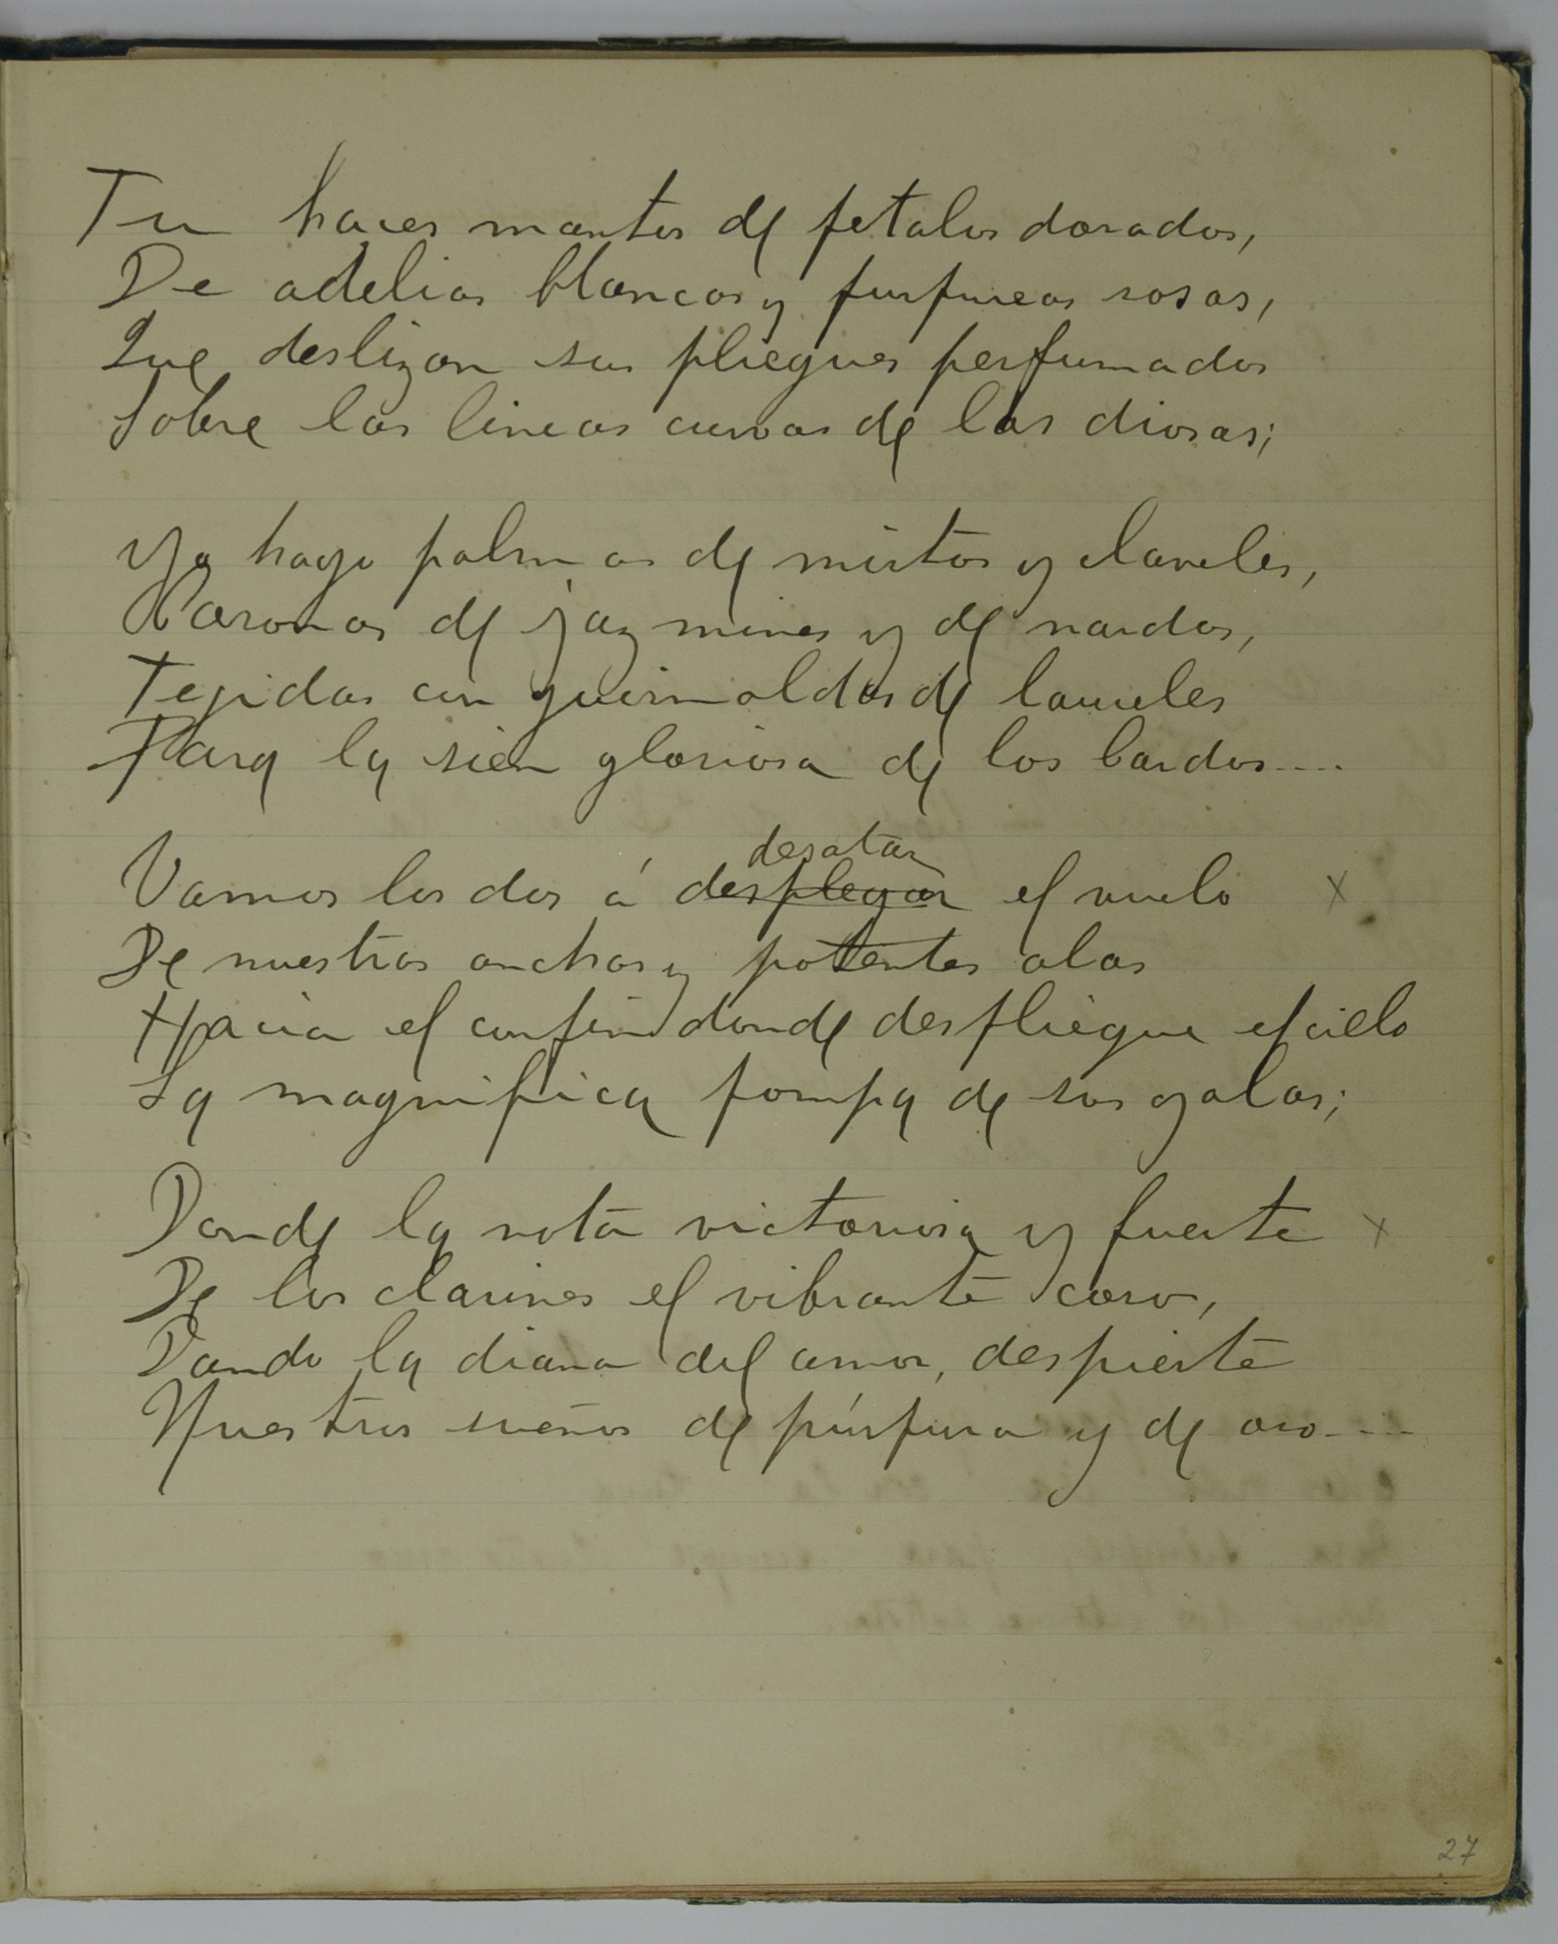 Tu haces mantos de petalos dorados,
De adelias blancas y purpureas rosas,
Que deslizan sus pliegues perfumados
Sobre las lineas curvas de las diosas;
Yo hago palmas de mirtos y claveles,
Coronas de jazmines y de nardos,
Tejidas con guirnaldas de laureles
Para la sien gloriosa de los bardos....
desatar
Vamos los dos á desplegar el vuelo X
De nuestras anchas y potentes alas
Hacia el confin donde despliegue el cielo
La magnifica pompa de sus galas;
Donde la nota victoriosa y fuerte x
De los clarines el vibrante coro,
Dando la diana del amor, despierte
Nuestros sueños de púrpura y de oro....
27